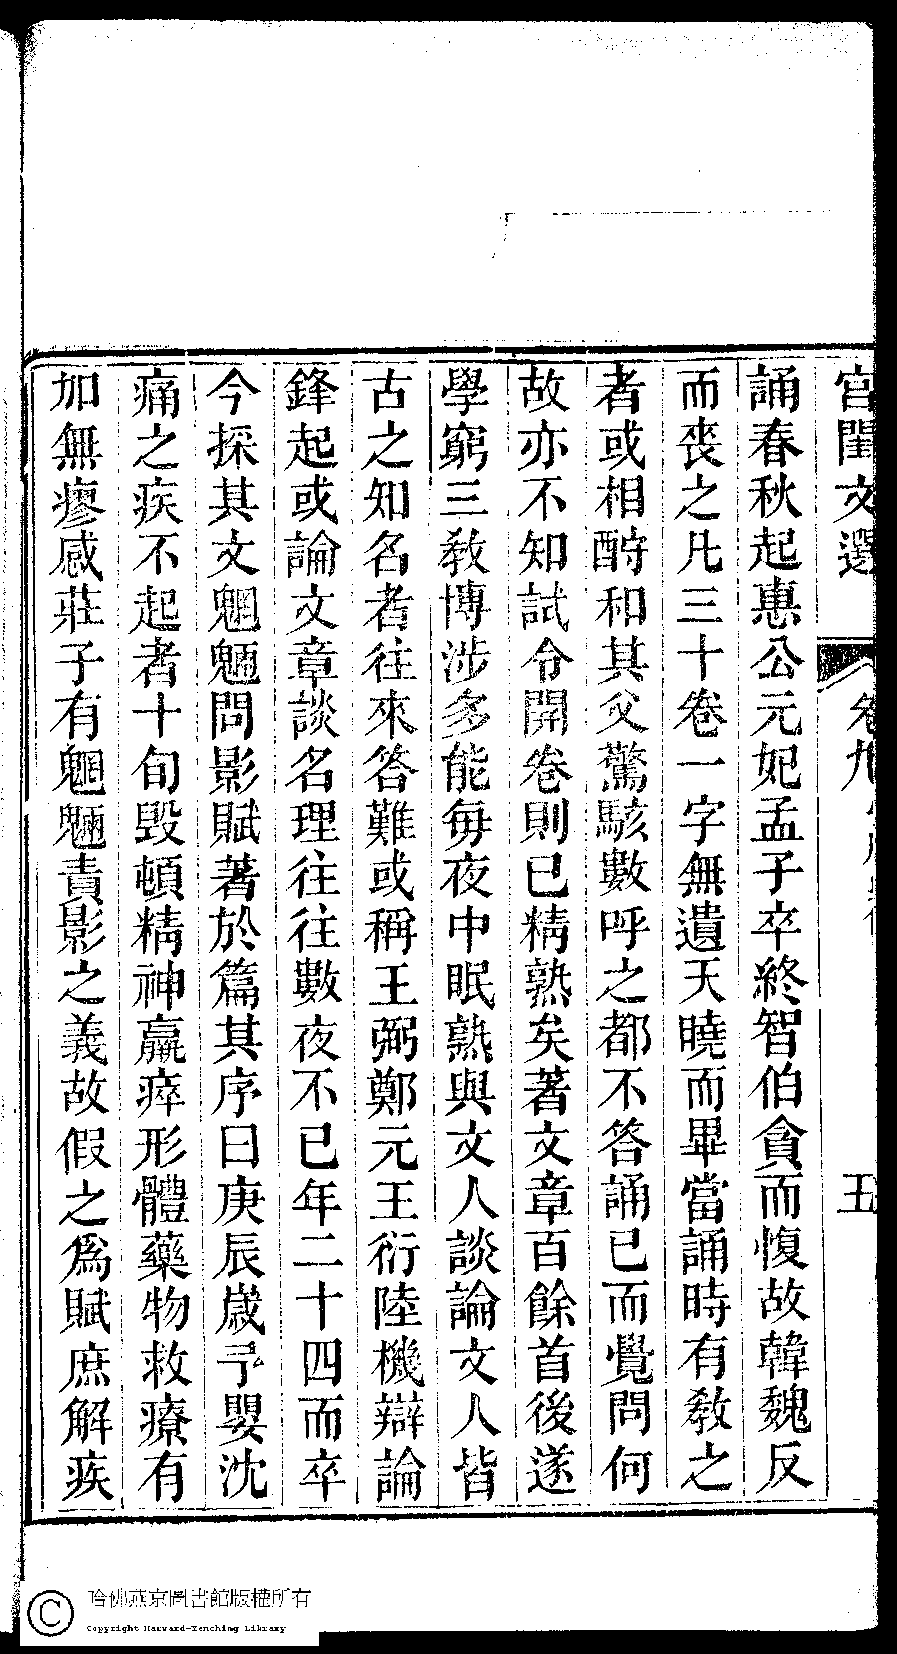 宫閨文選 卷九 五
誦春秋起惠公元妃孟子卒終智伯貪而愎故韓魏反
而喪之凡三十卷一字無遺天曉而畢當誦時有敎之
者或相酧和其父驚駭數呼之都不答誦已而覺問何
故亦不知試令開卷則已精熟矣著文章百餘首後遂
學窮三敎博涉多能每夜中眠熟與文人談論文人皆
古之知名者往來答難或稱王弼鄭元王衍陸機辯論
鋒起或論文章談名理往往數夜不已年二十四而卒
今採其文魍魎問影賦著於篇其序曰庚辰歲予嬰沈
痛之疾不起者十旬毀頓精神羸瘁形體藥物救療有
加無瘳感莊子有魍魎責影之義故假之爲賦庶解疾
哈佛燕京圖書館版權所有
Copyright Harvard-Yenching Library